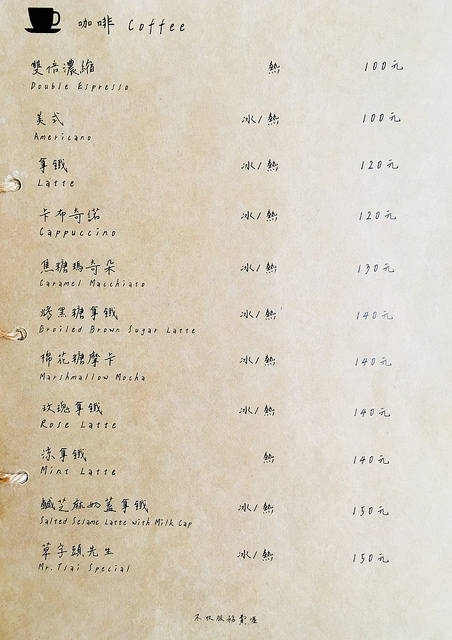 咖啡 Coffee
雙倍濃縮 熱 100元
Double Espresso
美式 冰/熱 100元
Americano
拿鐵 冰/熱 120元
Latte
卡布奇諾 冰/熱 120元
Cappuccino
焦糖瑪奇朵 冰/熱 130元
Caramel Macchiato
烤黑糖拿鐵 冰/熱 140元
Broiled Brown Sugar Latte
棉花糖摩卡 冰/熱 140元
Marshmallow Mocha
玫瑰拿鐵 冰/熱 140元
Rose Latte
涼拿鐵 熱 140元
Mint Latte
鹹芝麻奶蓋拿鐵 冰/熱 150元
Salted Sesame Latte with Milk Cap
草字頭先生 冰/熱 150元
Mr. Tsai Special
不收服務費喔